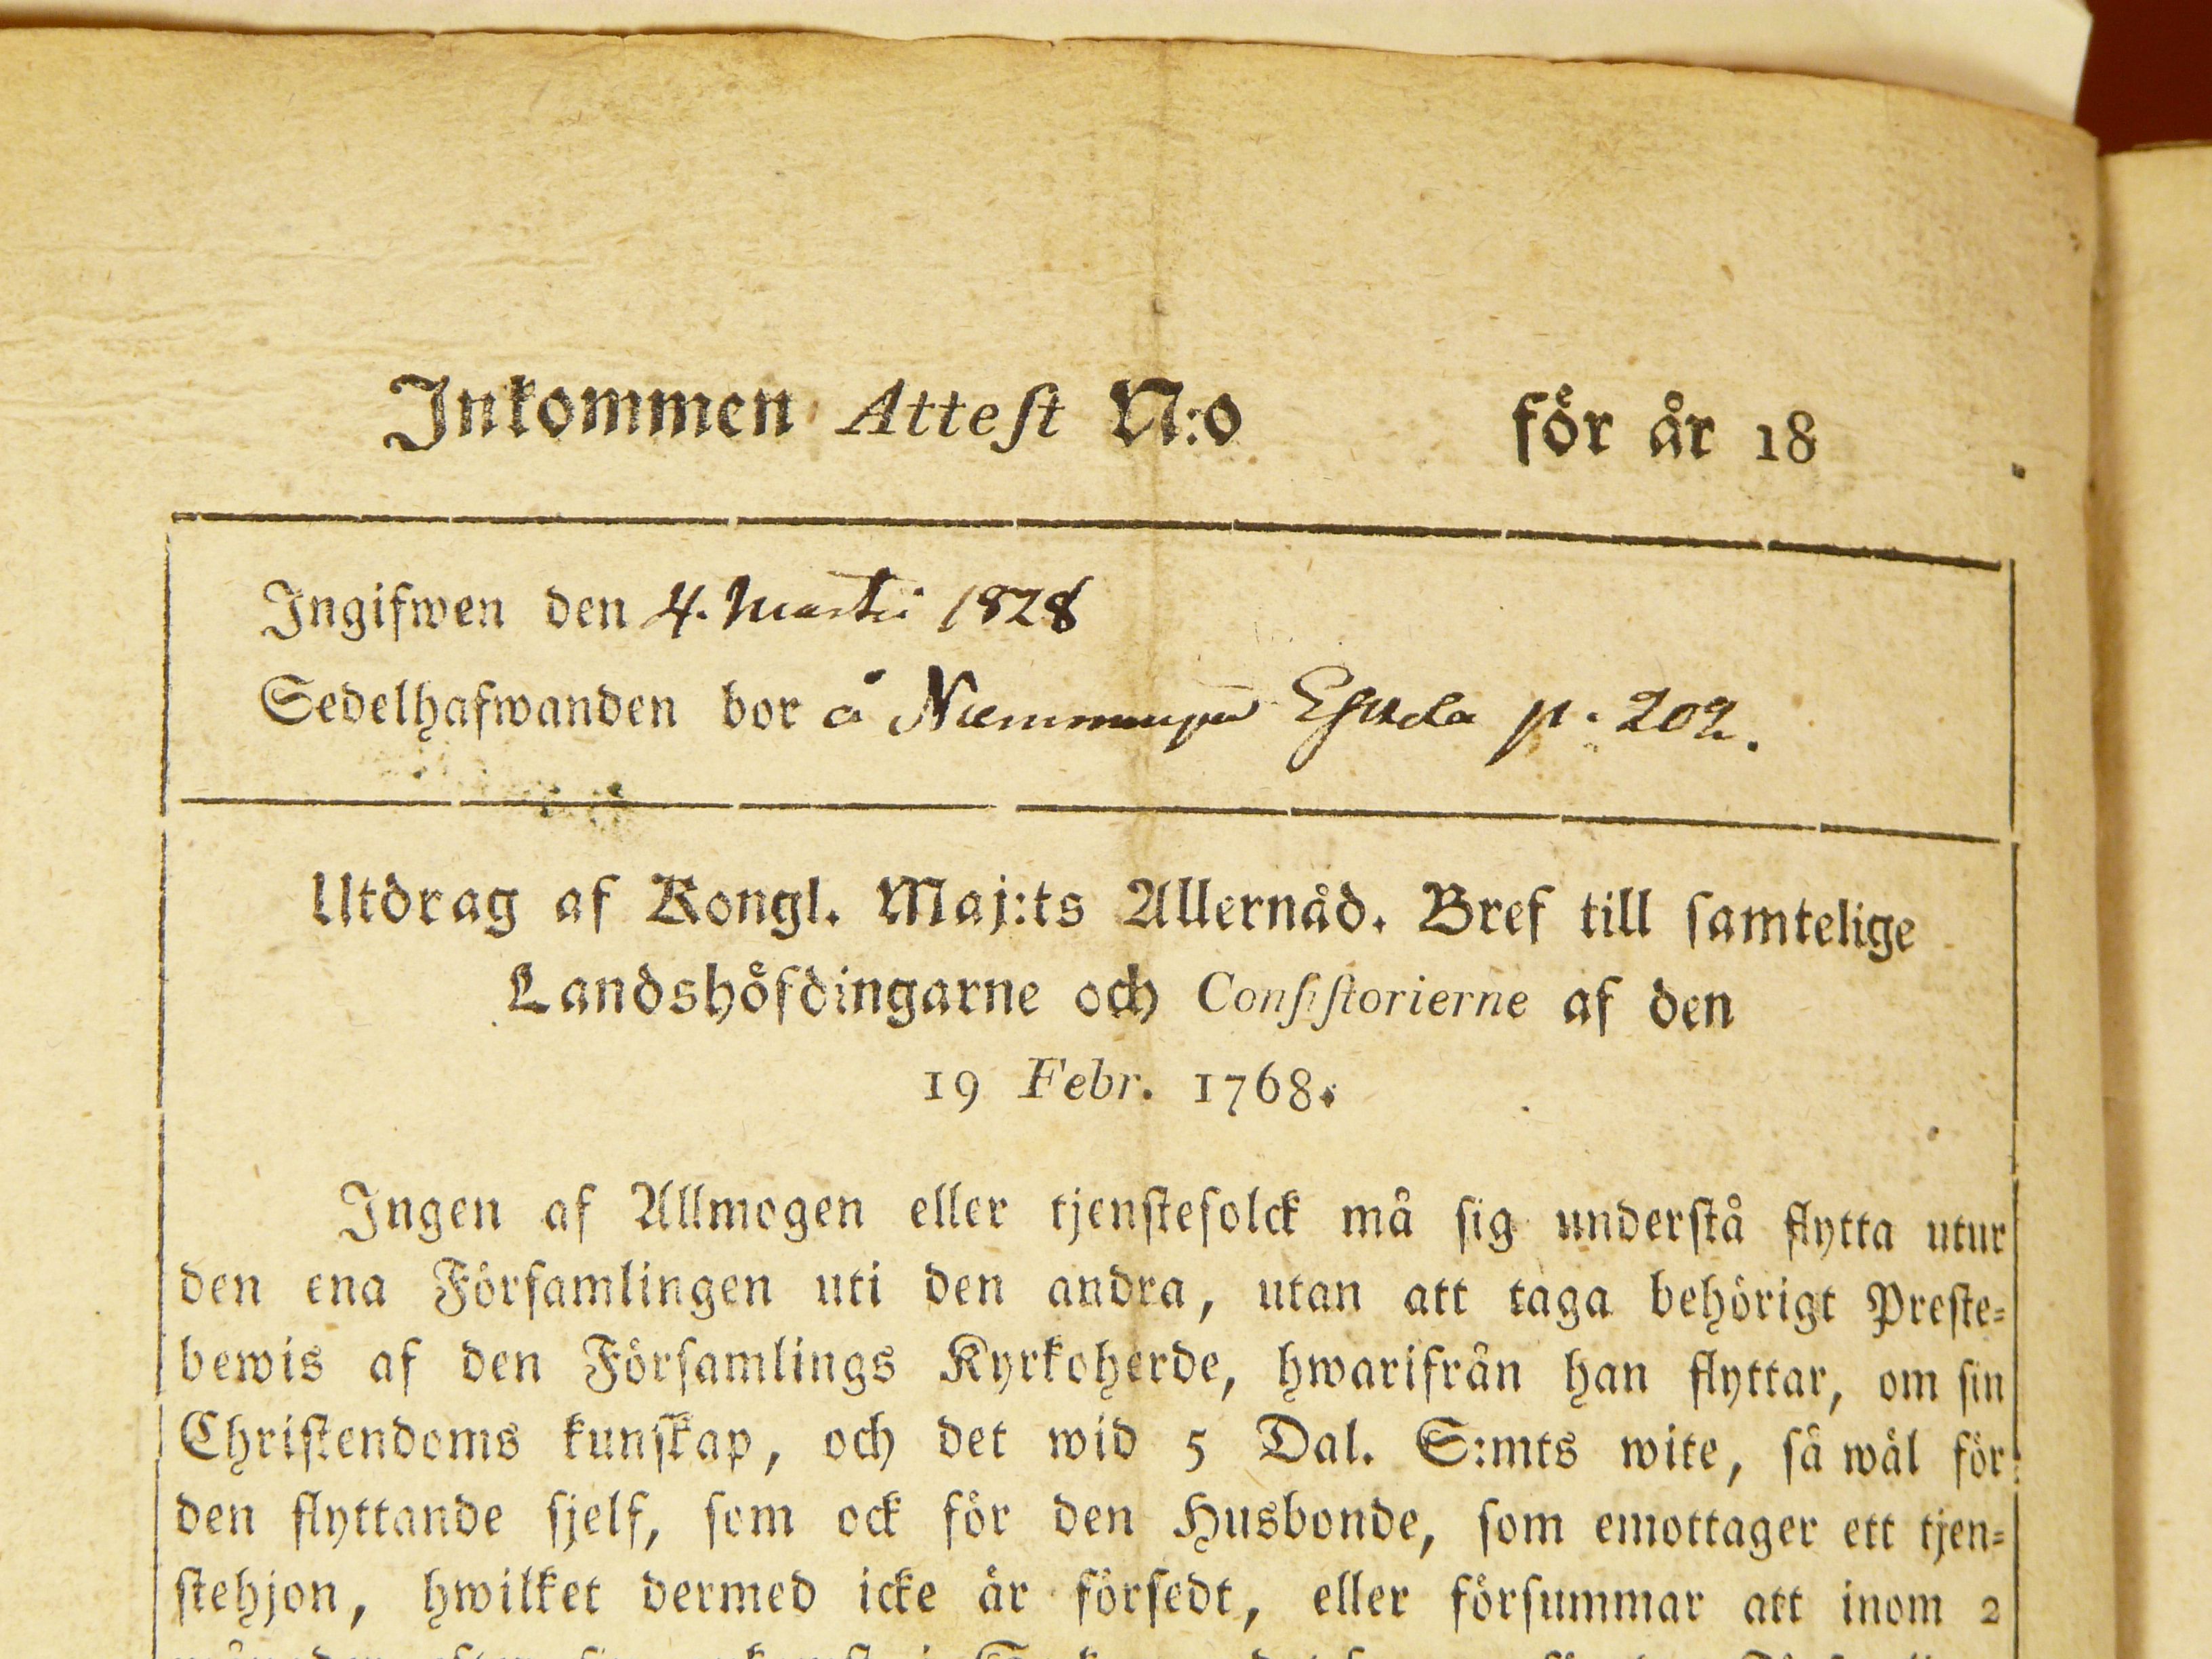 Inkommen Attest N:o för år 18
Ingifwen den 4. Martii 1828
Sedelhafwanden bor å p. 202.
Utdrag af Kongl. Maj:ts Allernåd. Bref till samtelige
Landshöfdingarne och Consistorierne af den
19 Febr. 1768.
Ingen af Allmogen eller tjenstefolck må sig understå flytta utur
den ena Församlingen uti den andra, utan att taga behörigt Preste-
bewis af den Församlings Kyrkoherde, hwarifrån han flyttar, om sin
Christendoms kunskap, och det wid 5 Dal. S:mts wite, så wäl för
den flyttande sjelf, som ock för den Husbonde, som emottager ett tjen-
stehjon, hwilket dermed icke är försedt, eller försummar att inom 2